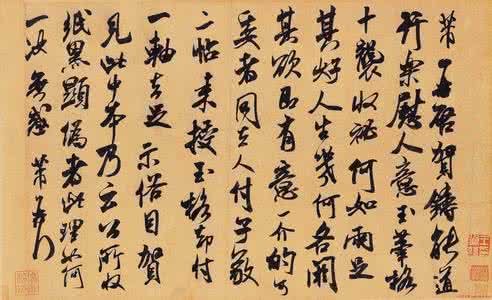 芾再啓賀鑄能道
行樂慰人意玉筆格
十襲收秘何如兩足
其好人生幾何各閼
其欲即有意一介的可
委者同去人付子敬
二帖來授玉格却付
一軸去足示俗目賀
見此中本乃云公所收
紙黑顯偽者此理如何
一決無惑 芾